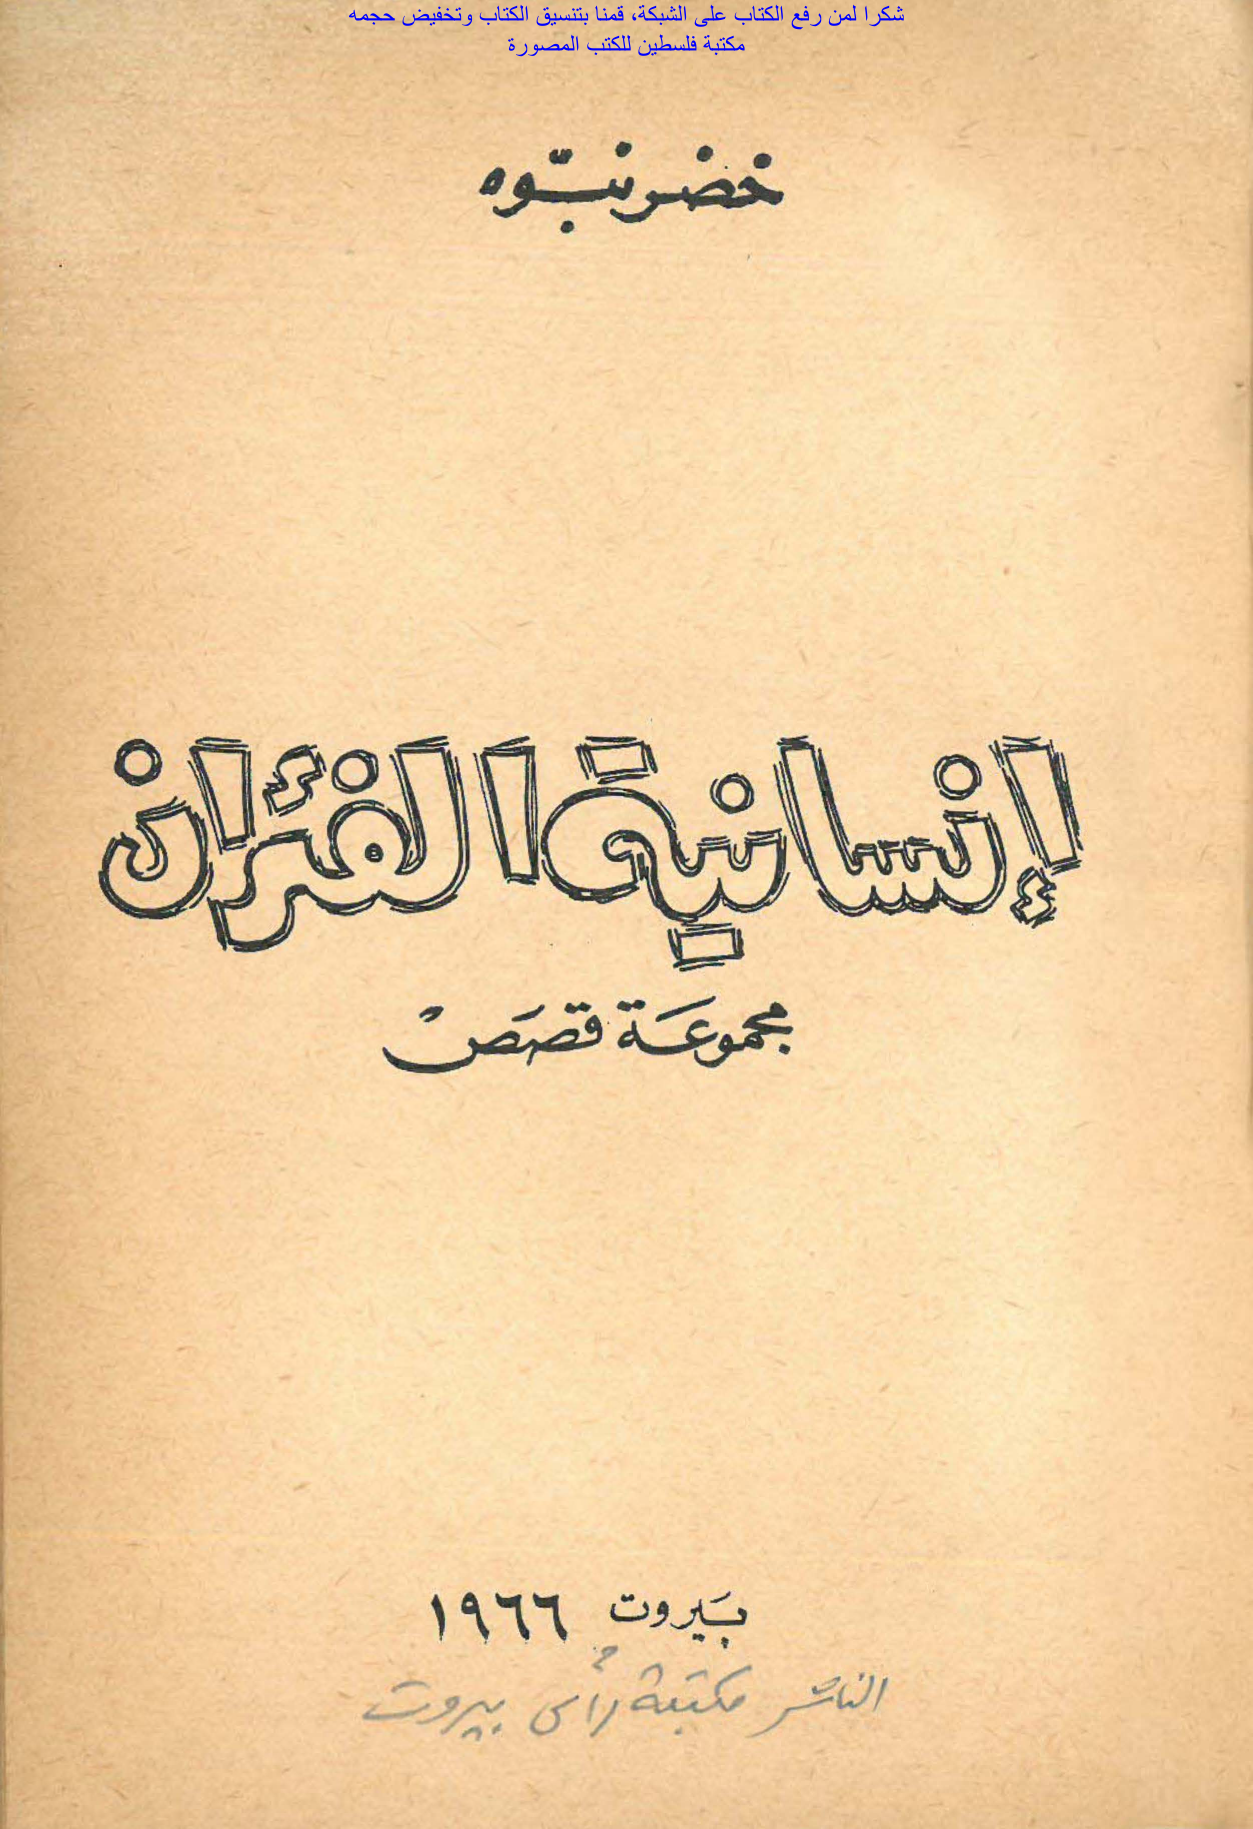 شكرا لمن رفع الكتاب على الشبكة، قمنا بتنسيق الكتاب وتخفيض حجمه
مكتبة فلسطين للكتب المصورة
خضر نبّوه
إنسانية الفئران
مجموعَة قصَصْ
بَيروت ١٩٦٦
الناشر مكتبة رأس بيروت